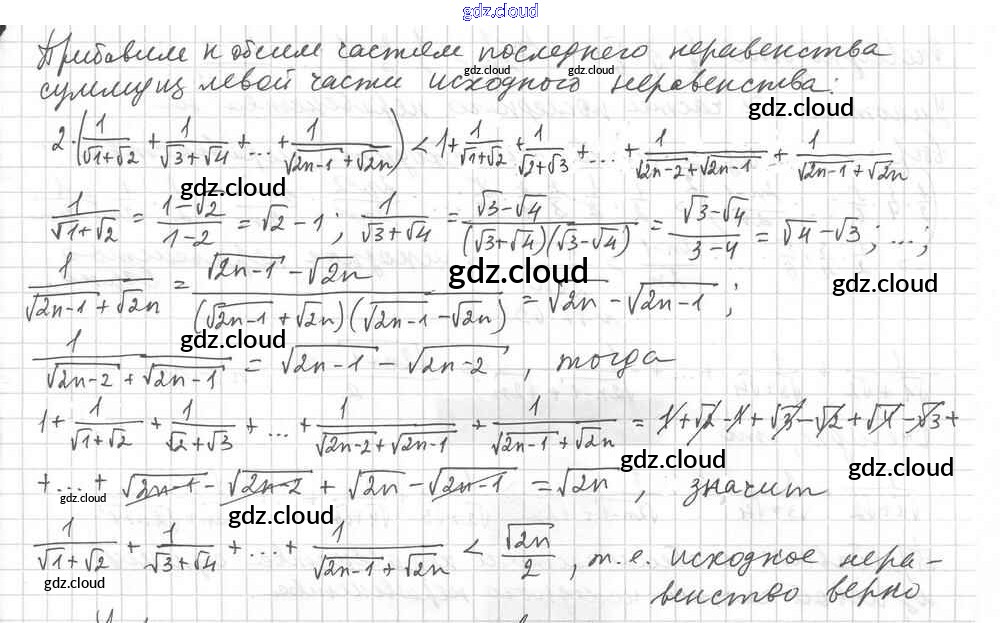 gdz.cloud
Прибавим к обеим частям последнего неравенства
gdz.cloud gdz.cloud
сумму из левой части исходного неравенства:
gdz.cloud
2·(1/(√1+√2) + 1/(√3+√4) + ... + 1/(√2n-1 + √2n)) < 1 + 1/(√1+√2) + 1/(√2+√3) + ... + 1/(√2n-2 + √2n-1) + 1/(√2n-1 + √2n)
gdz.cloud
1/(√1+√2) = (1-√2)/(1-2) = √2 - 1; 1/(√3+√4) = (√3-√4)/((√3+√4)(√3-√4)) = (√3-√4)/(3-4) = √4 - √3; ...;
gdz.cloud gdz.cloud
1/(√2n-1 + √2n) = (√2n-1 - √2n)/((√2n-1 + √2n)(√2n-1 - √2n)) = √2n - √2n-1;
gdz.cloud
1/(√2n-2 + √2n-1) = √2n-1 - √2n-2, тогда
1 + 1/(√1+√2) + 1/(√2+√3) + ... + 1/(√2n-2 + √2n-1) + 1/(√2n-1 + √2n) = 1 + √2 - 1 + √3 - √2 + √4 - √3 +
gdz.cloud gdz.cloud
+ ... + √2n-1 - √2n-2 + √2n - √2n-1 = √2n, значит
gdz.cloud
gdz.cloud
1/(√1+√2) + 1/(√3+√4) + ... + 1/(√2n-1 + √2n) < √2n/2, т.е. исходное нера-
gdz.cloud
венство верно